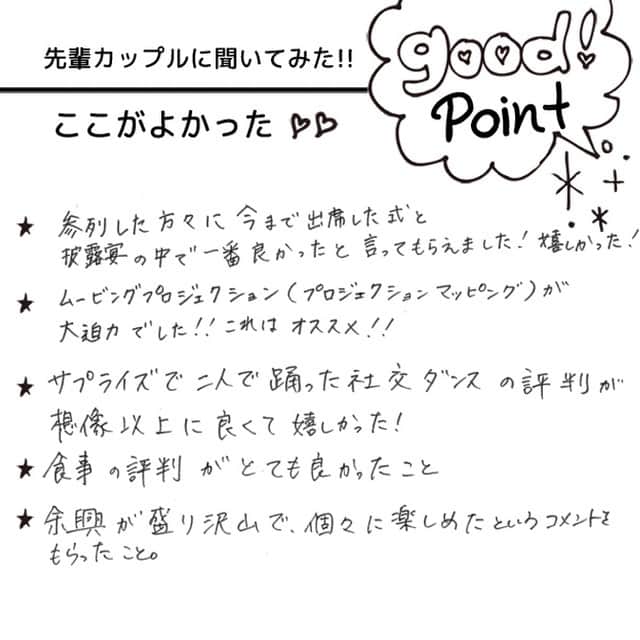 先輩カップルに聞いてみた!!
good!
Point
ここがよかった ♡♡
★ 参列した方々に今まで出席した式と
披露宴の中で一番良かったと言ってもらえました！嬉しかった！
★ ムービングプロジェクション(プロジェクションマッピング)が
大迫力でした!!これはオススメ!!
★ サプライズで二人で踊った社交ダンスの評判が
想像以上に良くて嬉しかった！
★ 食事の評判がとても良かったこと
★ 余興が盛り沢山で、個々に楽しめたというコメントを
もらったこと。